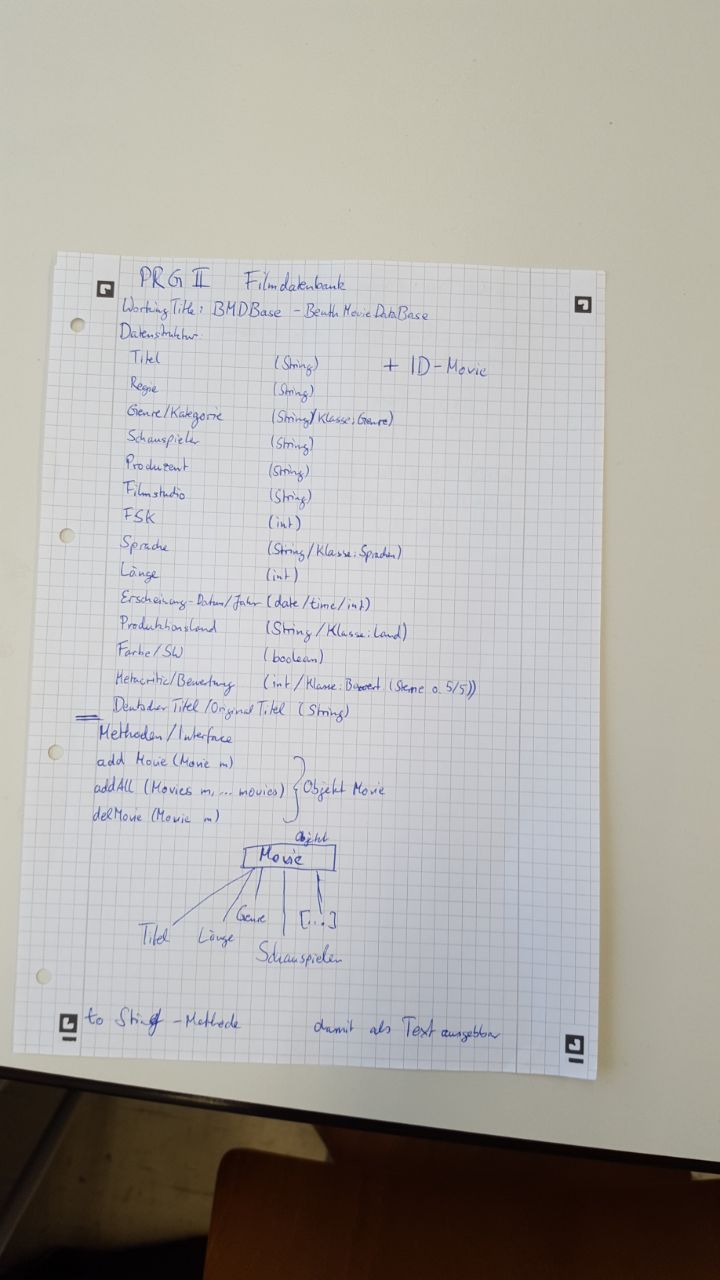 PRG II Filmdatenbank
Working Title: BMDBase - Beuth Movie DataBase
Datenstruktur:
Titel (String) + ID-Movie
Regie (String)
Genre/Kategorie (String/Klasse:Genre)
Schauspieler (String)
Produzent (String)
Filmstudio (String)
FSK (int)
Sprache (String/Klasse:Sprachen)
Länge (int)
Erscheinung-Datum/Jahr (date/time/int)
Produktionsland (String/Klasse:Land)
Farbe/SW (boolean)
Metacritic/Bewertung (int/Klasse: (Sterne o. 5/5))
Deutscher Titel/Original Titel (String)
Methoden/Interface
add Movie (Movie m)
addAll (Movies m, ... movies) } Objekt Movie
delMovie (Movie m)
Objekt
Movie
Titel Länge Genre [...]
Schauspieler
to String-Methode damit als Text ausgebbar